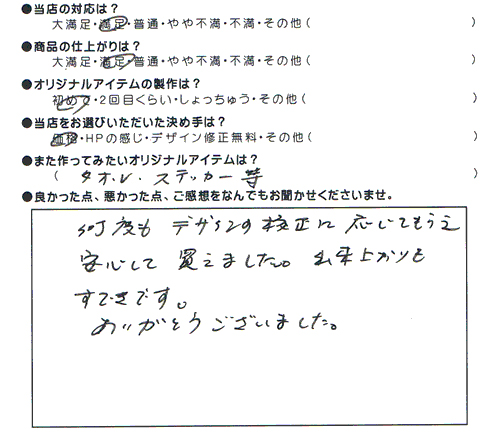 ●当店の対応は？
大満足・満足・普通・やや不満・不満・その他（　　　）
●商品の仕上がりは？
大満足・満足・普通・やや不満・不満・その他（　　　）
●オリジナルアイテムの製作は？
初めて・2回目くらい・しょっちゅう・その他（　　　）
●当店をお選びいただいた決め手は？
価格・HPの感じ・デザイン修正無料・その他（　　　）
●また作ってみたいオリジナルアイテムは？
（ タオル、ステッカー等 ）
●良かった点、悪かった点、ご感想をなんでもお聞かせくださいませ。
何度も デザインの校正に 応じてもらえ
安心して 買えました。 出来上がりも
すてきです。
ありがとうございました。